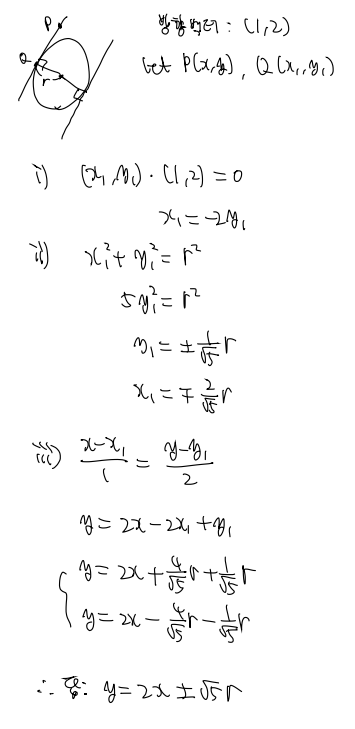 P
방향벡터: (1,2)
Q
r
let P(x,y), Q(x₁,y₁)
i) (x₁,y₁)·(1,2)=0
x₁=-2y₁
ii) x₁²+y₁²=r²
5y₁²=r²
y₁=±1/√5 r
x₁=∓2/√5 r
iii) (x-x₁)/1=(y-y₁)/2
y=2x-2x₁+y₁
y=2x+4/√5 r+1/√5 r
y=2x-4/√5 r-1/√5 r
∴ 답: y=2x±√5r